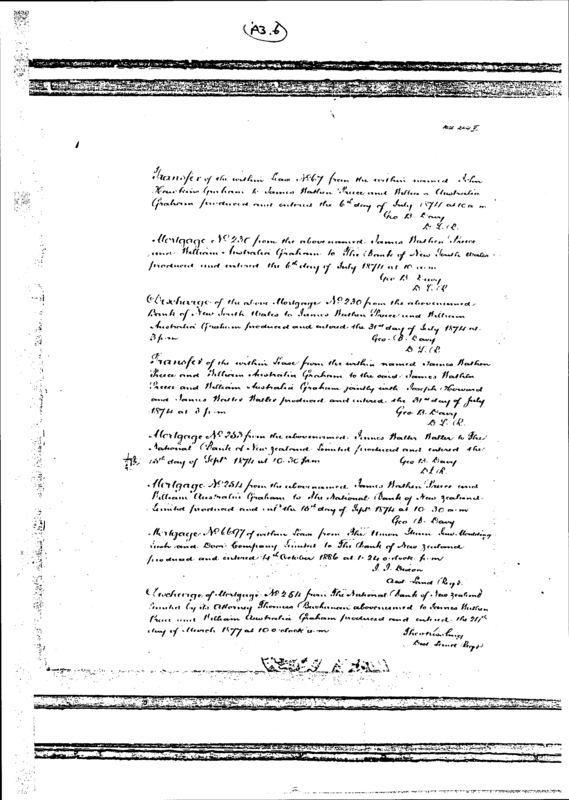 A3.6
Transfer of the within Lease No 67 from the within named John
Hawkins Graham to James Bathen Preece and William Australia
Graham produced and entered the 6th day of July 1874 at 10 a m
Geo B. Davy
D. L. R.
Mortgage No 230 from the above named James Bathen Preece
and William Australia Graham to The Bank of New South Wales
produced and entered the 6th day of July 1874 at 10 a.m
Geo B Davy
D L R
Discharge of the above Mortgage No 230 from the abovenamed
Bank of New South Wales to James Bathen Preece and William
Australia Graham produced and entered the 31st day of July 1874 at
3 p.m
Geo. B. Davy
D. L. R.
Transfer of the within Lease from the within named James Bathen
Preece and William Australia Graham to the said James Bathen
Preece and William Australia Graham jointly with Joseph Howard
and James Watter Watter produced and entered the 31st day of July
1874 at 3 p.m
Geo B. Davy
D. L. R.
Mortgage No 253 from the abovenamed James Watter Watter to The
National Bank of New Zealand Limited produced and entered the
15th day of Septr 1874 at 10.30 am
Geo B. Davy
D L R
Mortgage No 254 from the abovenamed James Bathen Preece and
William Australia Graham to The National Bank of New Zealand
Limited produced and entd the 15th day of Sept 1874 at 10 30 a.m
Geo B. Davy
Mortgage No 6697 of within Lease from The Union Steam Saw Moulding
Sash and Door Company Limited to The Bank of New Zealand
produced and entered 4th October 1886 at 1.24 o.clock p.m
Asst Land Regr
Discharge of Mortgage No 254 from The National Bank of New Zealand
Limited by its Attorney Thomas Buchanan abovenamed to James Bathen
Preece and William Australia Graham produced and entered the
day of March 1877 at 10 o clock a.m
Dist Land Regr